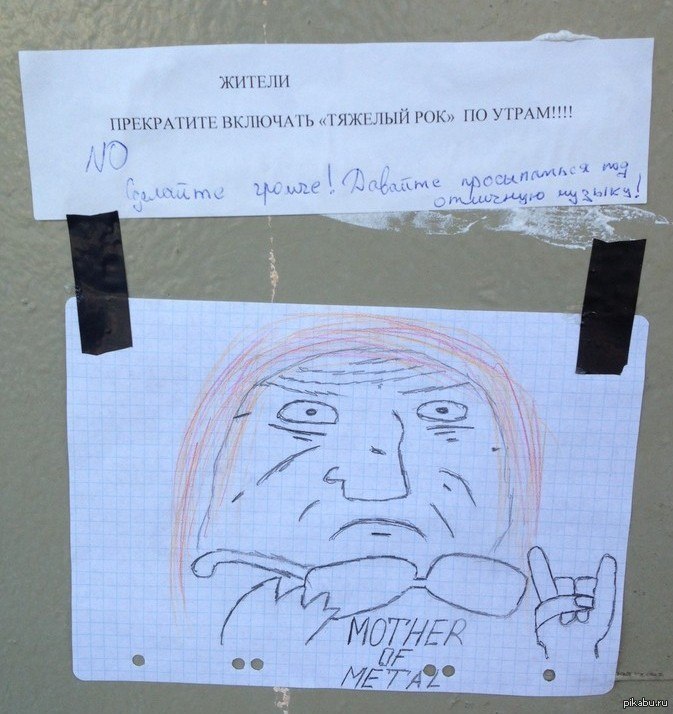 ЖИТЕЛИ
ПРЕКРАТИТЕ ВКЛЮЧАТЬ «ТЯЖЕЛЫЙ РОК» ПО УТРАМ!!!!
NO
Сделайте громче! Давайте просыпаться под
отличную музыку!
MOTHER
OF
METAL
pikabu.ru